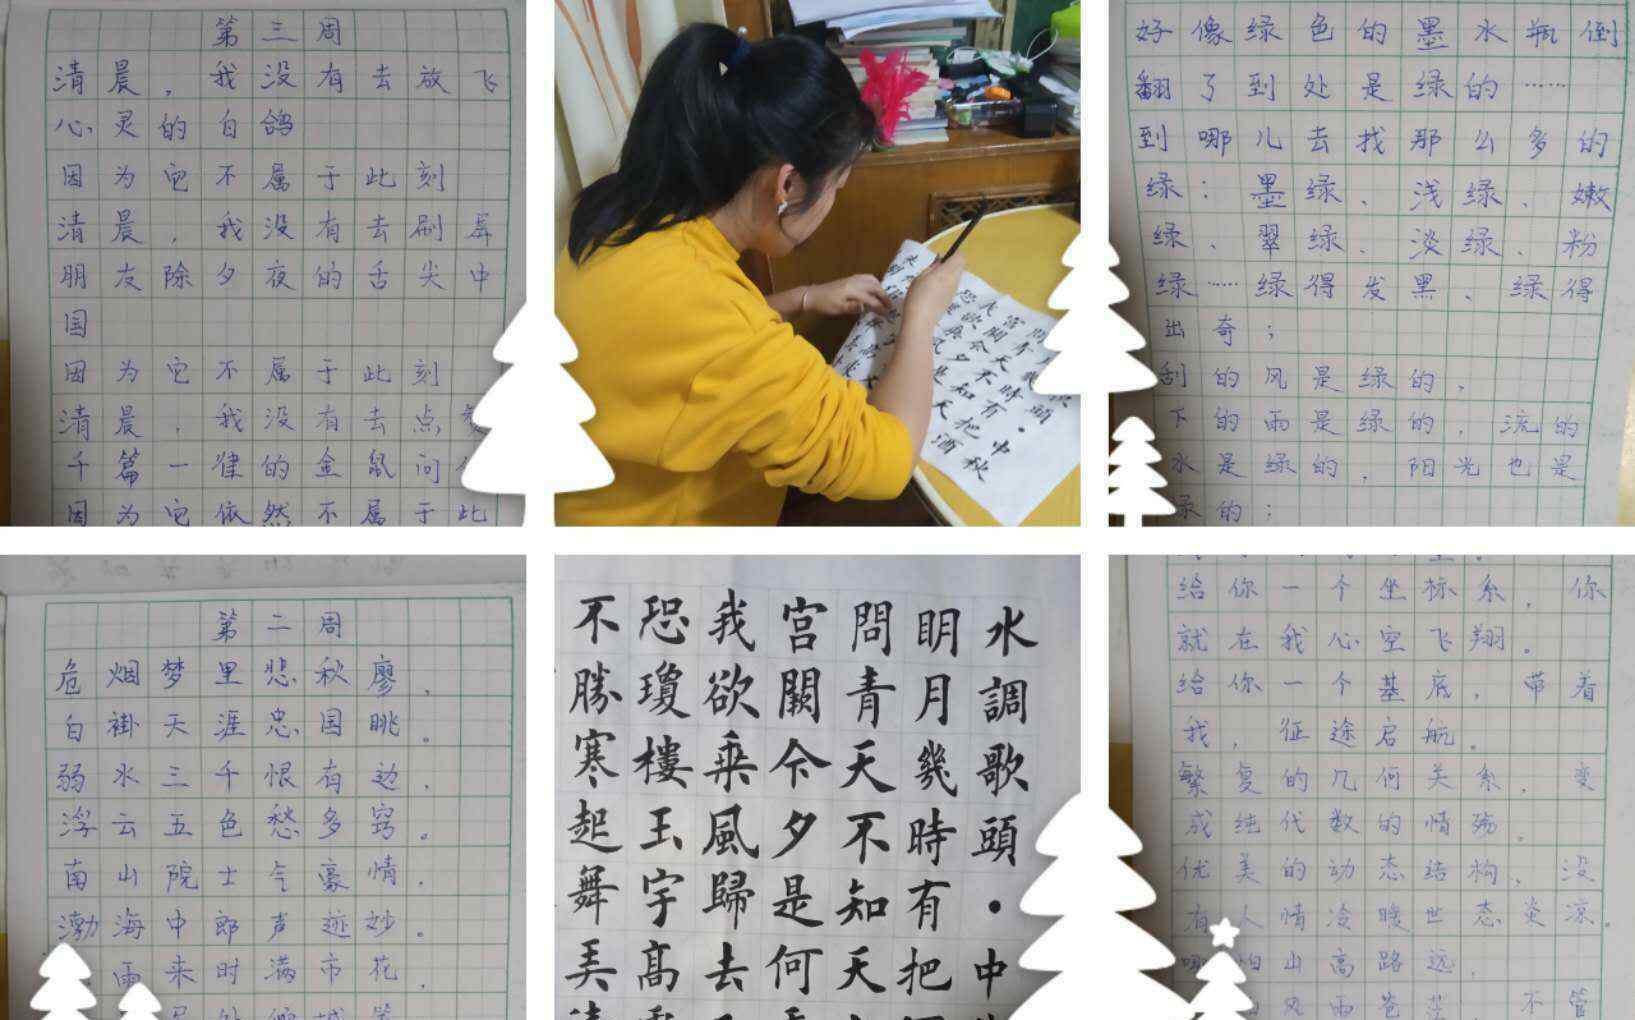 第三周
清晨，我没有去放飞
心灵的白鸽
因为它不属于此刻
清晨，我没有去刷屏
朋友除夕夜的舌尖中
国
因为它不属于此刻
清晨，我没有去点
千篇一律的金鼠问
因为它依然不属于此
問青
宮闕今天不時有
我欲
恐
頭·中秋
知
把酒
天
好像绿色的墨水瓶倒
翻了到处是绿的……
到哪儿去找那么多的
绿：墨绿、浅绿、嫩
绿、翠绿、淡绿、粉
绿……绿得发黑、绿得
出奇；
刮的风是绿的，
下的雨是绿的，流的
水是绿的，阳光也是
绿的；
第二周
危烟梦里悲秋廖，
白褂天涯忠国眺。
弱水三千恨有边，
浮云五色愁多窍。
南山院士气豪情，
渤海中郎声迹妙。
雨来时满市花，
水調歌頭·中
明月幾時有把
問青天不知天
宮闕今夕是何
我欲乘風歸去
恐瓊樓玉宇高
不勝寒起舞弄
给你一个坐标系，你
就在我心空飞翔。
给你一个基底，带着
我，征途启航。
繁复的几何关系，变
成纯代数的情殇。
优美的动态结构，没
有人情冷暖世态炎凉。
哪怕山高路远，
风雨苍茫，不管